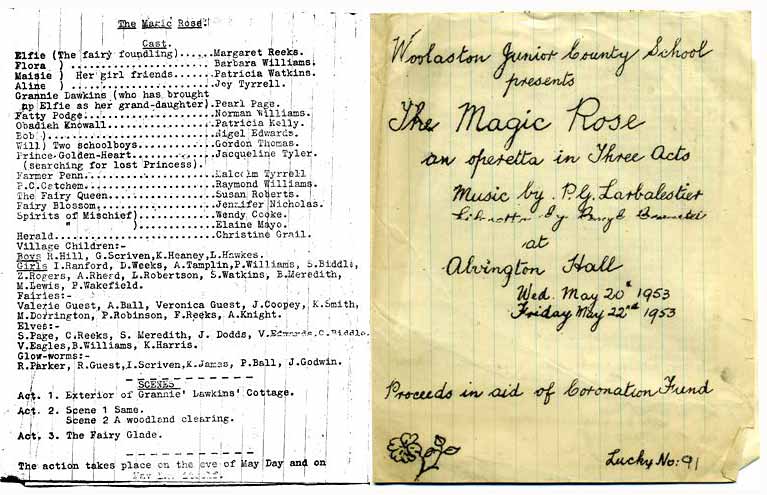 The Magic Rose.
Cast.
Elfie (The fairy foundling)......Margaret Reeks.
Flora ) ..................Barbara Williams.
Maisie ) Her girl friends......Patricia Watkins.
Aline ) ..................Joy Tyrrell.
Grannie Dawkins (who has brought
up Elfie as her grand-daughter).Pearl Page.
Fatty Podge..................Norman Williams.
Obadiah Knowall..............Patricia Kelly.
Bob )........................Nigel Edwards.
Will) Two schoolboys.........Gordon Thomas.
Prince Golden-Heart..........Jacqueline Tyler.
(searching for lost Princess).
Farmer Penn..................Malcolm Tyrrell
P.C.Catchem..................Raymond Williams.
The Fairy Queen..............Susan Roberts.
Fairy Blossom................Jennifer Nicholas.
Spirits of Mischief).........Wendy Cooke.
" ).........Elaine Mayo.
Herald.......................Christine Grail.
Village Children:-
Boys R.Hill, G.Scriven,K.Heaney,L.Hawkes.
Girls I.Ranford, D.Weeks, A.Tamplin,P.Williams, S.Biddle,
Z.Rogers, A.Rherd, L.Robertson, S.Watkins, B.Meredith,
M.Lewis, P.Wakefield.
Fairies:-
Valerie Guest, A.Ball, Veronica Guest, J.Coopey, K.Smith,
M.Dorrington, P.Robinson, F.Reeks, A.Knight.
Elves:-
S.Page, C.Reeks, S. Meredith, J. Dodds, V.Edwards,C.Biddle
V.Eagles,B.Williams, K.Harris.
Glow-worms:-
R.Parker, R.Guest,I.Scriven,K.James, P.Ball, J.Godwin.
SCENES
Act. 1. Exterior of Grannie Dawkins' Cottage.
Act. 2. Scene 1 Same.
Scene 2 A woodland clearing.
Act. 3. The Fairy Glade.
The action takes place on the eve of May Day and on
Woolaston Junior County School
presents
The Magic Rose
an operetta in Three Acts
Music by P.G. Larbalestier
Libretto by
at
Alvington Hall
Wed. May 20th 1953
Friday May 22nd 1953
Proceeds in aid of Coronation Fund
Lucky No: 91